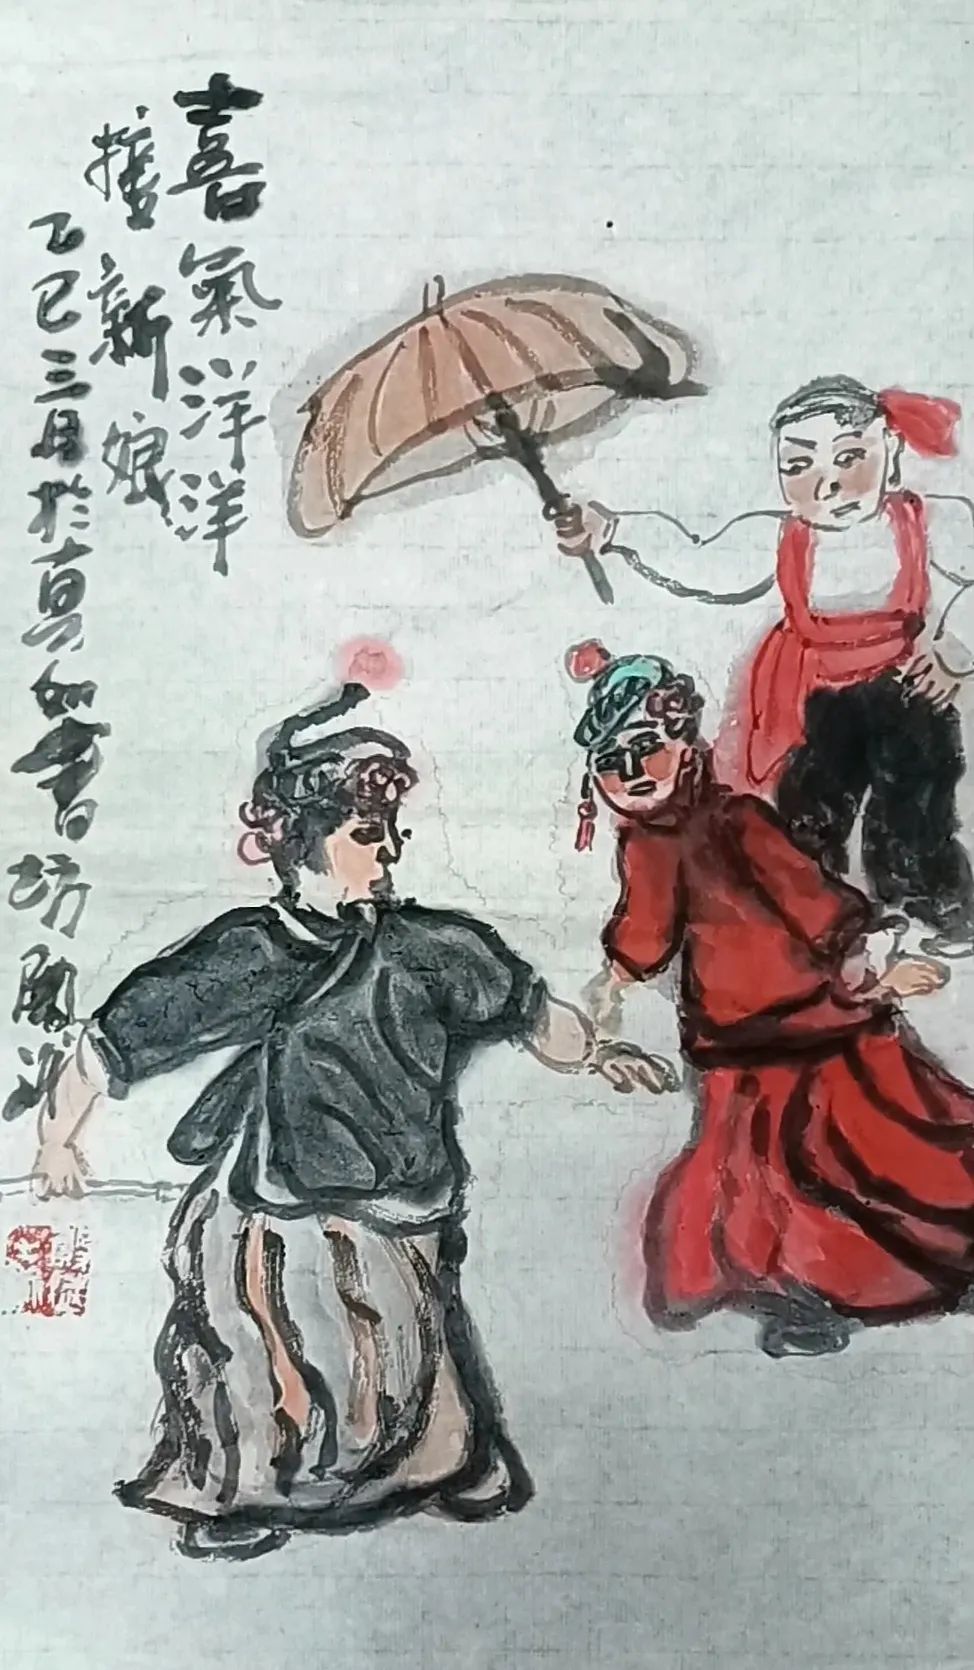 喜氣洋洋
擡新娘
乙巳三月於真如書坊